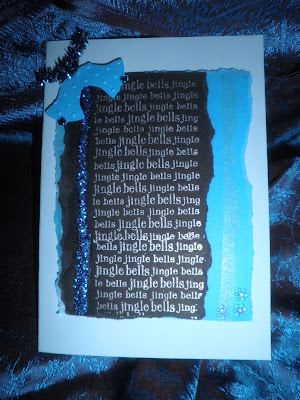 bells jingle
jingle bells jingle
jingle bells jingle bells
le bells jingle bells jing
jingle bells jingle bells
bells jingle bells jingle
jingle bells jingle bells
jingle bells jingle bells
bells jingle bells jingle
jingle bells jingle bells
le bells jingle bells jing
jingle bells jingle bells
bells jingle bells jingle
jingle bells jingle bells
bells jingle bells jingle
jingle bells jingle bells
jingle bells jingle bells
le bells jingle bells jing
jingle bells jingle bells
bells jingle bells jing